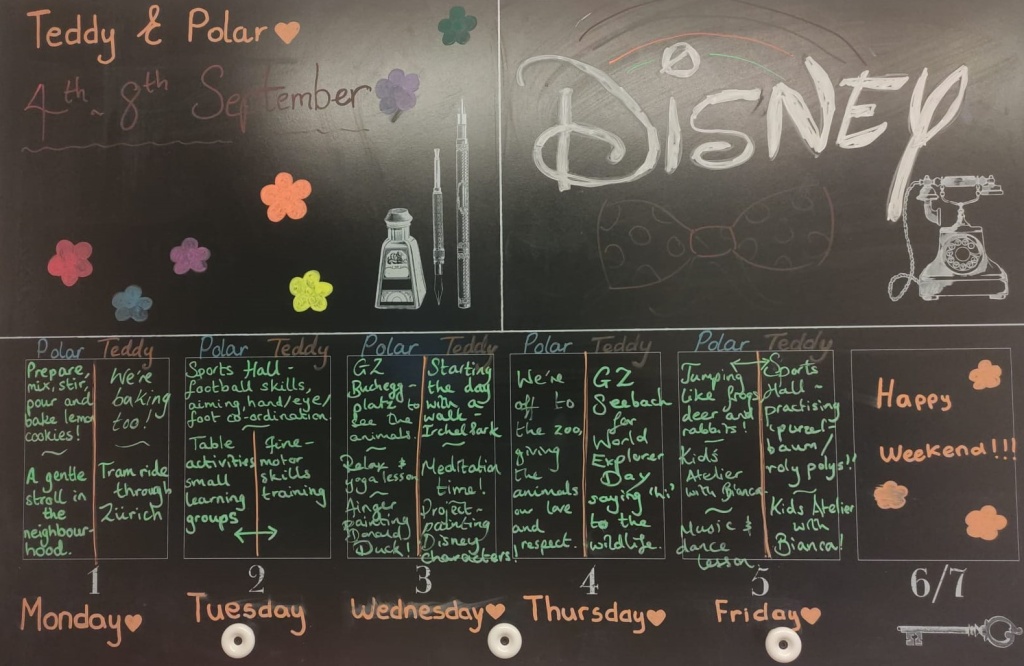 Teddy & Polar
4th ~ 8th September
DiSNEY
Polar Teddy
Prepare,
mix, stir,
pour and
bake lemo
cookies!
~
A gentle
stroll in
the
neighbour-
hood.
We're
baking
too!
~
Tram ride
through
Zürich
Polar Teddy
Sports Hall -
football skills,
aiming, hand/eye/
foot co-ordination.
~
Table
activities
small
learning
groups
fine-
motor
skills
training
Polar Teddy
GZ
Buchegg-
platz to
see the
animals.
~
Relax &
yoga lesson
~
Finger
painting
Donald
Duck!
Starting
the day
with a
walk-
Irchel Park
~
Meditation
time!
~
Project-
painting
Disney
characters!
Polar Teddy
We're
off to
the zoo,
giving
the
animals
our love
and
respect.
GZ
Seebach
for
World
Explorer
Day
saying 'hi'
to the
wildlife.
Polar Teddy
Jumping
like frogs,
deer and
rabbits!
~
Kids
Atelier
with Bianca
~
Music &
dance
lesson.
Sports
Hall ~
practising
"purzel-
baum/
roly polys!"
~
Kids Atelier
with
Bianca!
Happy
Weekend!!!
1
2
3
4
5
6/7
Monday
Tuesday
Wednesday
Thursday
Friday